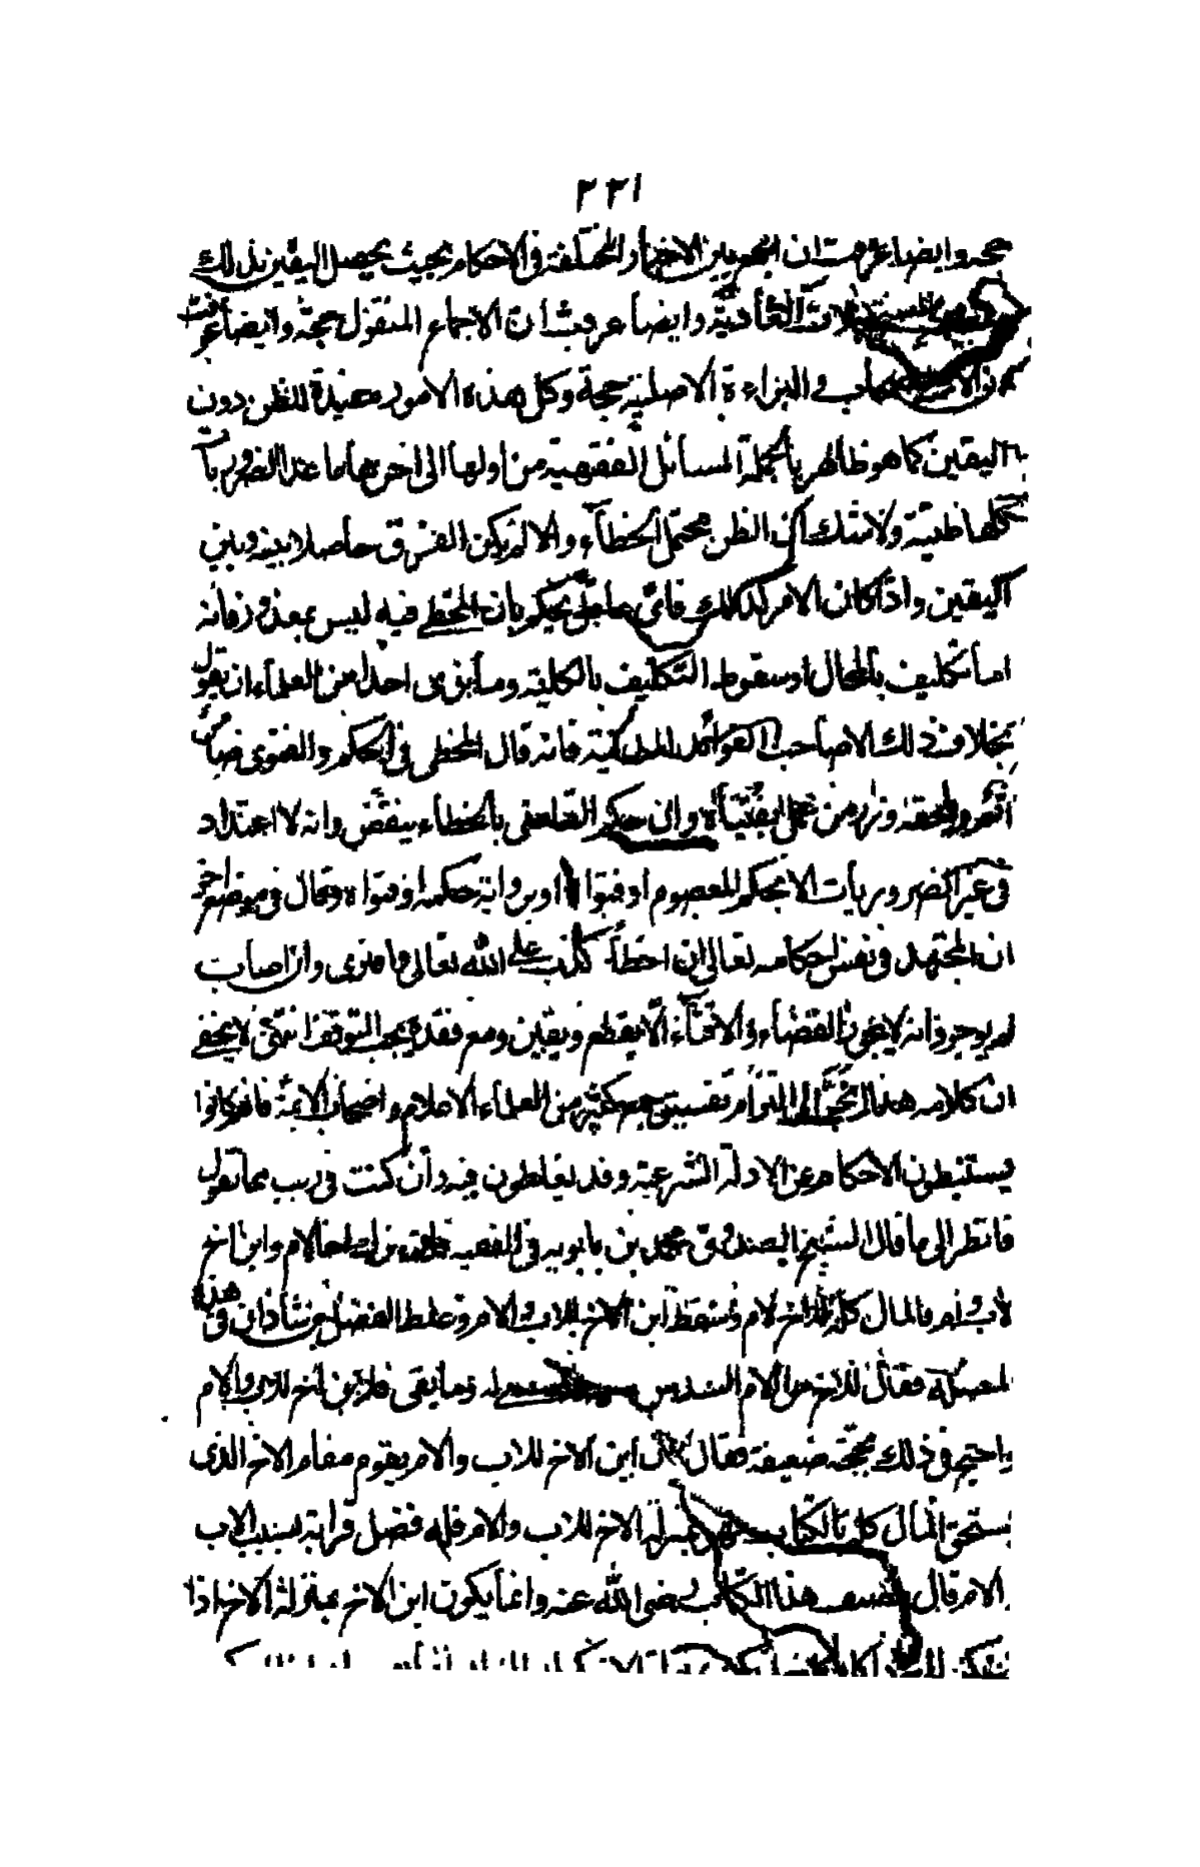 ٢٣١
حجة وايضا عرفت ان الجمع بين الاخبار المختلفة في الاحكام بحيث يحصل اليقين بذلك
العادية وايضا عرفت ان الاجماع المنقول حجة وايضا عرفت
في البراءة الاصلية حجة وكل هذه الامور مفيدة للظن دون
اليقين كما هو ظاهر بالجملة المسائل الفقهية من اولها الى اخرها ما عدا الضروريات
كلها ظنية ولا شك ان الظن محتمل الخطاء والا لم يكن الفرق حاصلا بينه وبين
اليقين واذا كان الامر كذلك فاى عاقل يحكم بان المخطى فيه ليس بمعذور فانه
اما تكليف بالمحال او سقوط التكليف بالكلية وما نرى احدا من العلماء ان يقول
بخلاف ذلك الا صاحب الفوائد المدنية فانه قال المخطى في الحكم والفتوى ضامن
اثم ولحقه وزر من عمل بفتياه وان حكم القاضى بالخطاء ينقض وانه لا اعتداد
في غير الضروريات الا بحكم المعصوم او فتواه او برواية حكمه او فتواه وقال في موضع اخر
ان المجتهد في نفس احكامه تعالى ان اخطأ كذب على الله تعالى وافترى وان اصاب
لم يوجر وانه لا يجوز القضاء والافتاء الا بقطع ويقين ومع فقده يجب التوقف انتهى لا يخفى
ان كلامه هذا الى التزام تفسيق جمع كثير من العلماء الاعلام واصحاب الائمة فانهم كانوا
يستنبطون الاحكام عن الادلة الشرعية وقد يغلطون فيه وان كنت في ريب مما نقول
فانظر الى ما قال الشيخ الصدوق محمد بن بابويه في الفقيه اخا لام وابن اخ
لاب وام فالمال كله للاخ لام وسقط ابن الاخ للاب والام وغلط الفضل بن شاذان في هذه
المسئلة فقال للاخ من الام السدس وما بقى فلابن الاخ للاب والام
واحتج في ذلك بحجة ضعيفة فقال لان ابن الاخ للاب والام يقوم مقام الاخ الذى
يستحق المال كله بالكتاب فهو بمنزلة الاخ للاب والام فله فضل قرابة بسبب الاب
الام قال مصنف هذا الكتاب رضى الله عنه وانما يكون ابن الاخ بمنزلة الاخ اذا